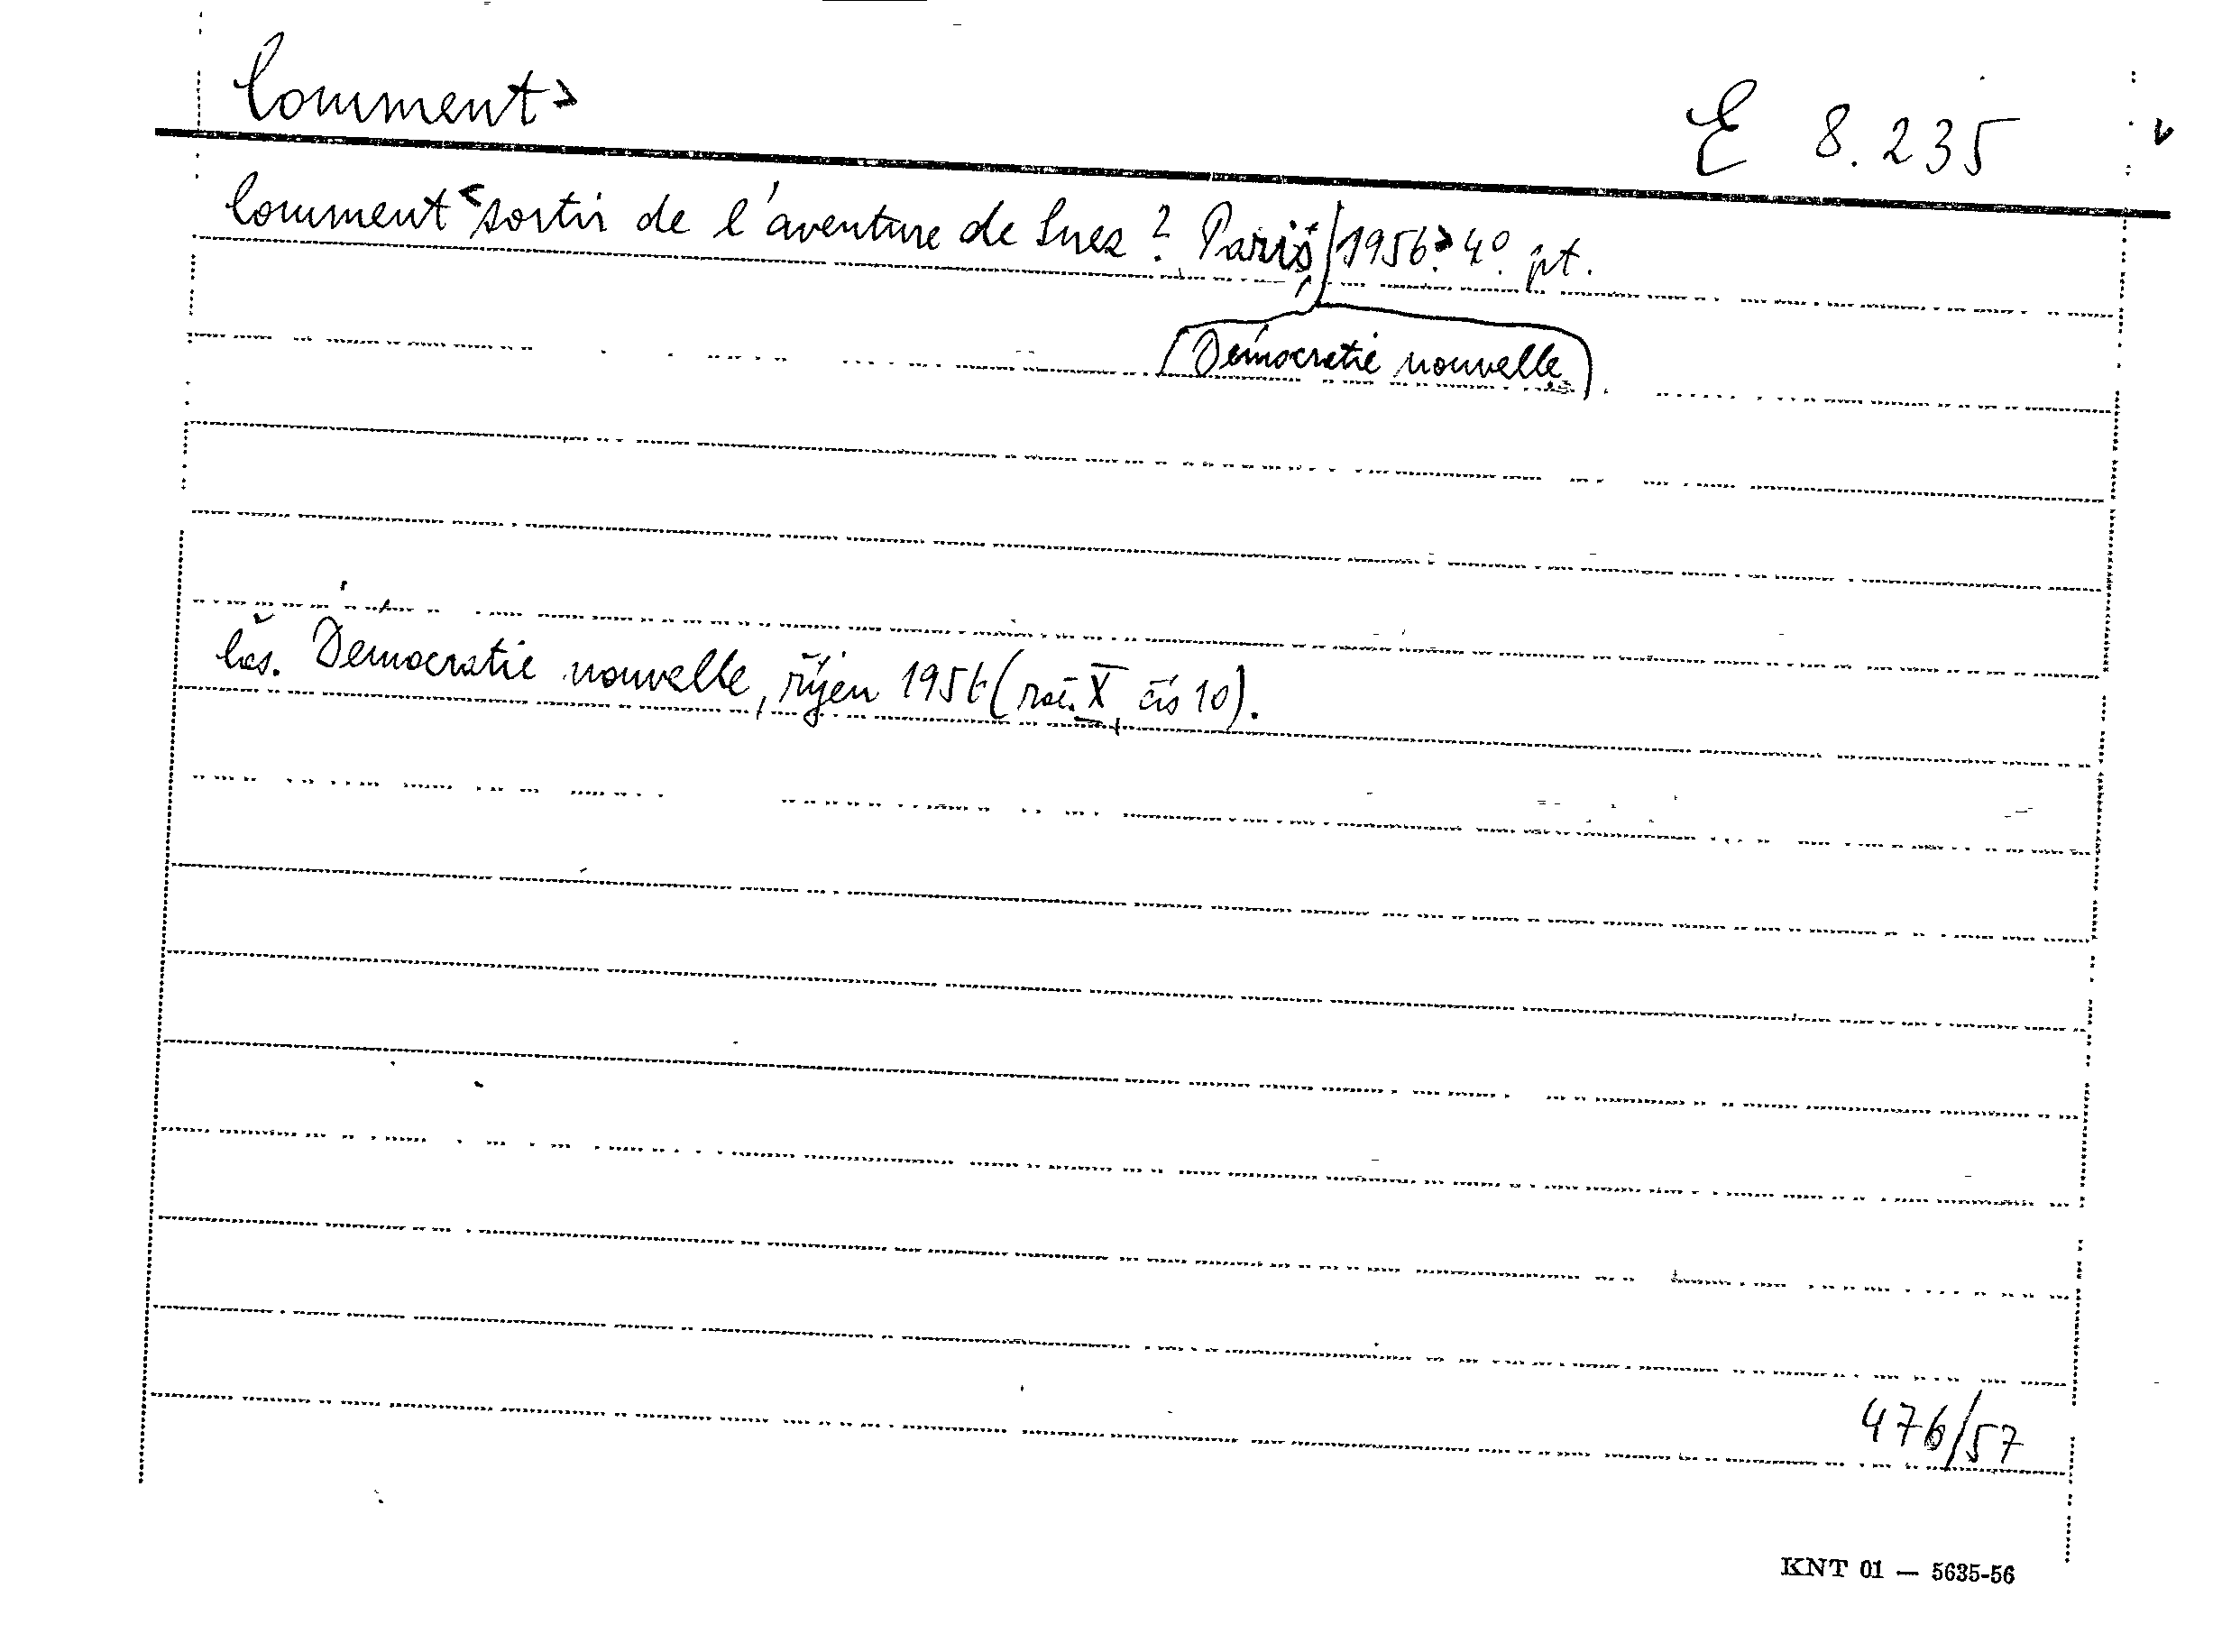 Comment>
E 8.235
Comment <sortir de l'aventure de Suez? Paris, 1956> 4°. pt.
Démocratie nouvelle
Čas. Démocratie nouvelle, říjen 1956 (roč. X, čís 10).
476/57
KNT 01 — 5635-56